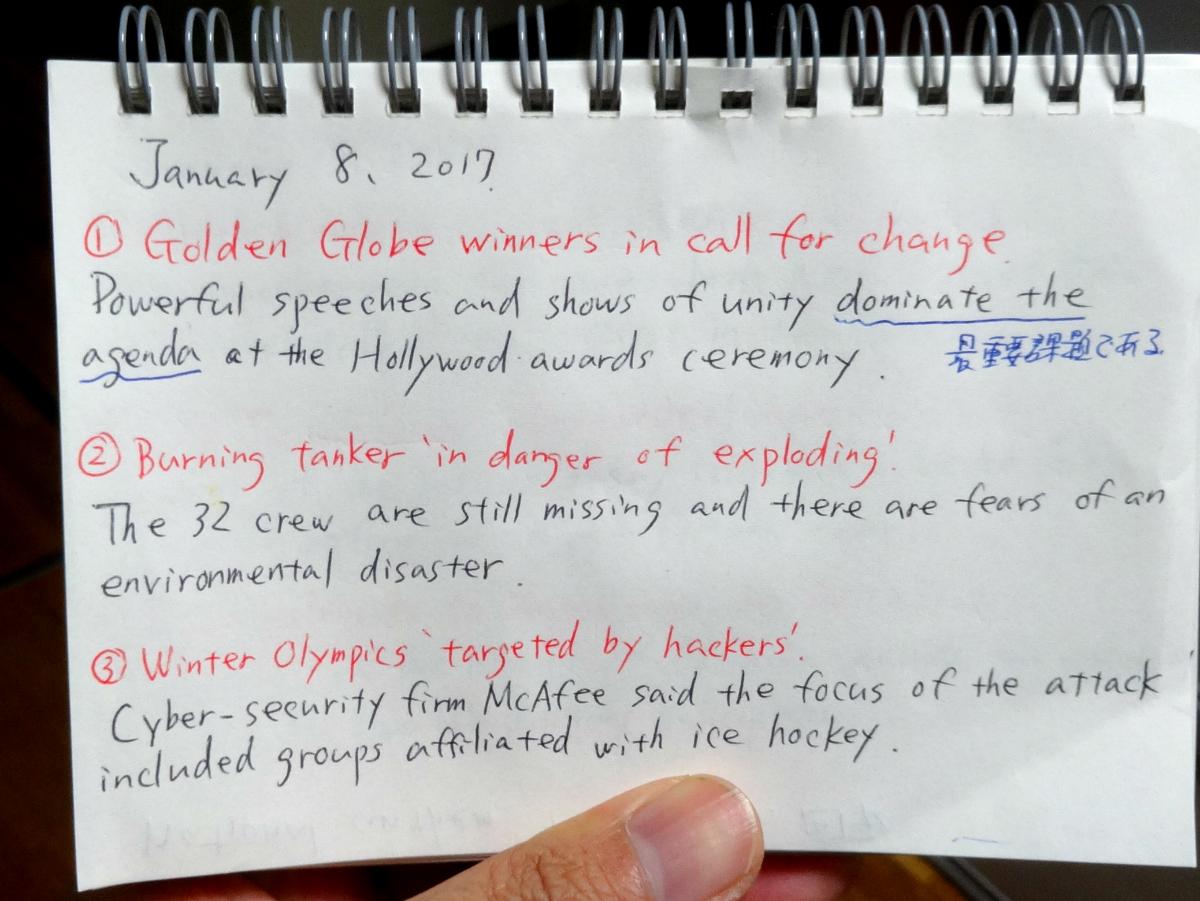 January 8、2017
① Golden Globe winners in call for change.
Powerful speeches and shows of unity dominate the
agenda at the Hollywood awards ceremony.
最重要課題である
② Burning tanker 'in danger of exploding'.
The 32 crew are still missing and there are fears of an
environmental disaster.
③ Winter Olympics 'targeted by hackers'.
Cyber-security firm McAfee said the focus of the attack
included groups affiliated with ice hockey.